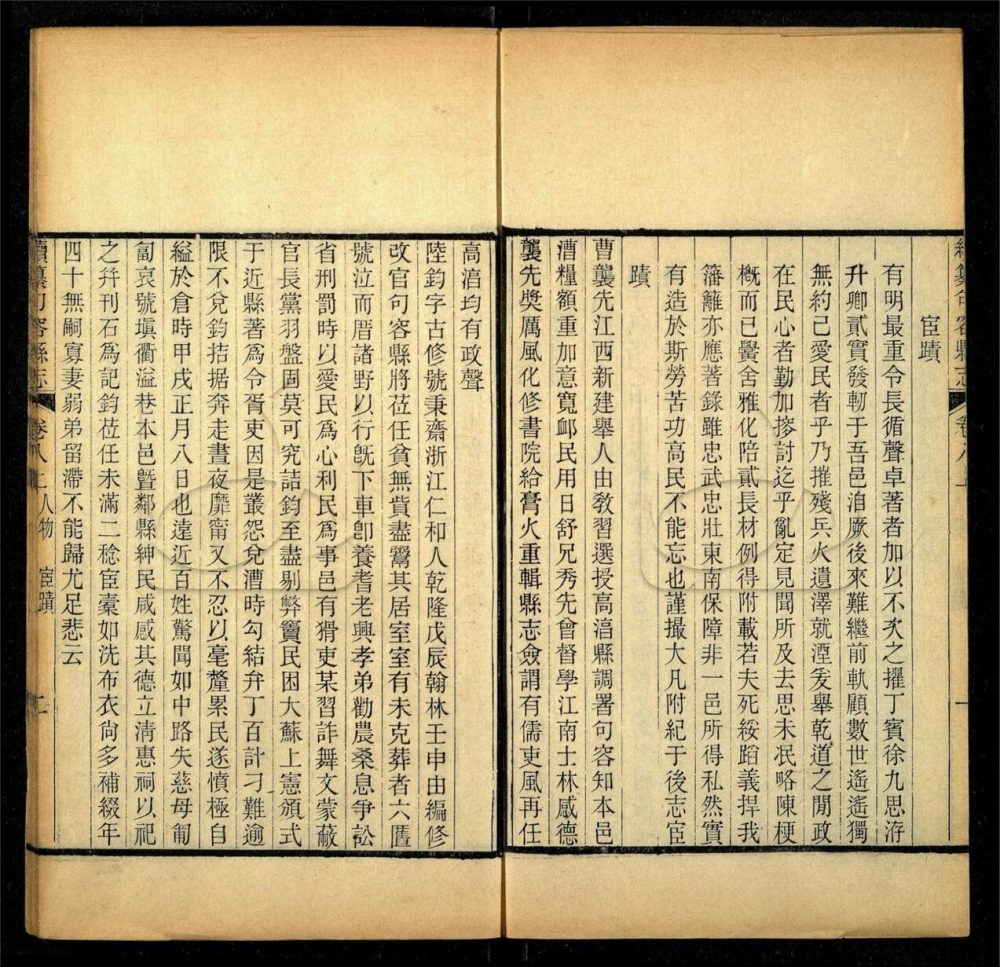 續纂句容縣志 卷八上 一
宦蹟
有明最重令長循聲卓著者加以不次之擢丁賓徐九思洊
升卿貳實發軔于吾邑洎厥後來難繼前軌顧數世遙遙獨
無約己愛民者乎乃摧殘兵火遺澤就湮爰舉乾道之閒政
在民心者勤加摉討迄乎亂定見聞所及去思未泯略陳梗
槪而已黌舍雅化陪貳長材例得附載若夫死綏蹈義捍我
籓籬亦應著錄雖忠武忠壯東南保障非一邑所得私然實
有造於斯勞苦功高民不能忘也謹撮大凡附紀于後志宦
蹟
曹襲先江西新建舉人由敎習選授高湻縣調署句容知本邑
漕糧額重加意寬䘏民用日舒兄秀先曾督學江南士林感德
襲先奬厲風化修書院給膏火重輯縣志僉謂有儒吏風再任
高湻均有政聲
陸鈞字古修號秉齋浙江仁和人乾隆戊辰翰林壬申由編修
改官句容縣將莅任貧無貲盡鬻其居室室有未克葬者六匶
號泣而厝諸野以行旣下車卽養耆老興孝弟勸農桑息爭訟
省刑罰時以愛民爲心利民爲事邑有猾吏某習詐舞文蒙蔽
官長黨羽盤固莫可究詰鈞至盡剔弊竇民困大蘇上憲頒式
于近縣著爲令胥吏因是叢怨兌漕時勾結弁丁百計刁難逾
限不兌鈞拮据奔走晝夜靡甯又不忍以毫釐累民遂憤極自
縊於倉時甲戌正月八日也遠近百姓驚聞如中路失慈母匍
匐哀號塡衢溢巷本邑曁鄰縣紳民咸感其德立淸惠祠以祀
之幷刊石爲記鈞莅任未滿二稔宦橐如洗布衣尙多補綴年
四十無嗣寡妻弱弟留滯不能歸尤足悲云
續纂句容縣志 卷八上人物 宦蹟 二